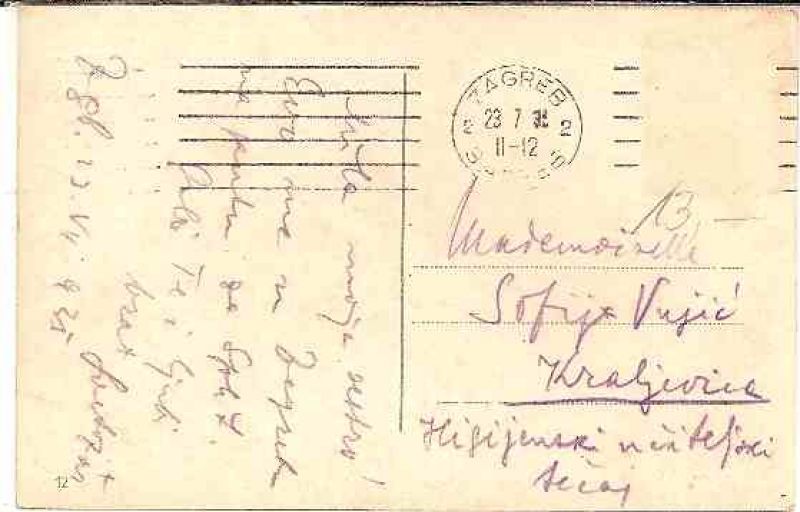 Mila moja sestro!
Evo me u Zagrebu
na putu za Split.
Te i ljubi
brat
Zgb. 23. VII. 931
ZAGREB
2 23 7 31 2
11-12
13
Mademoiselle
Sofija Vujić
Kraljevica
Higijenski učiteljski
tečaj
12